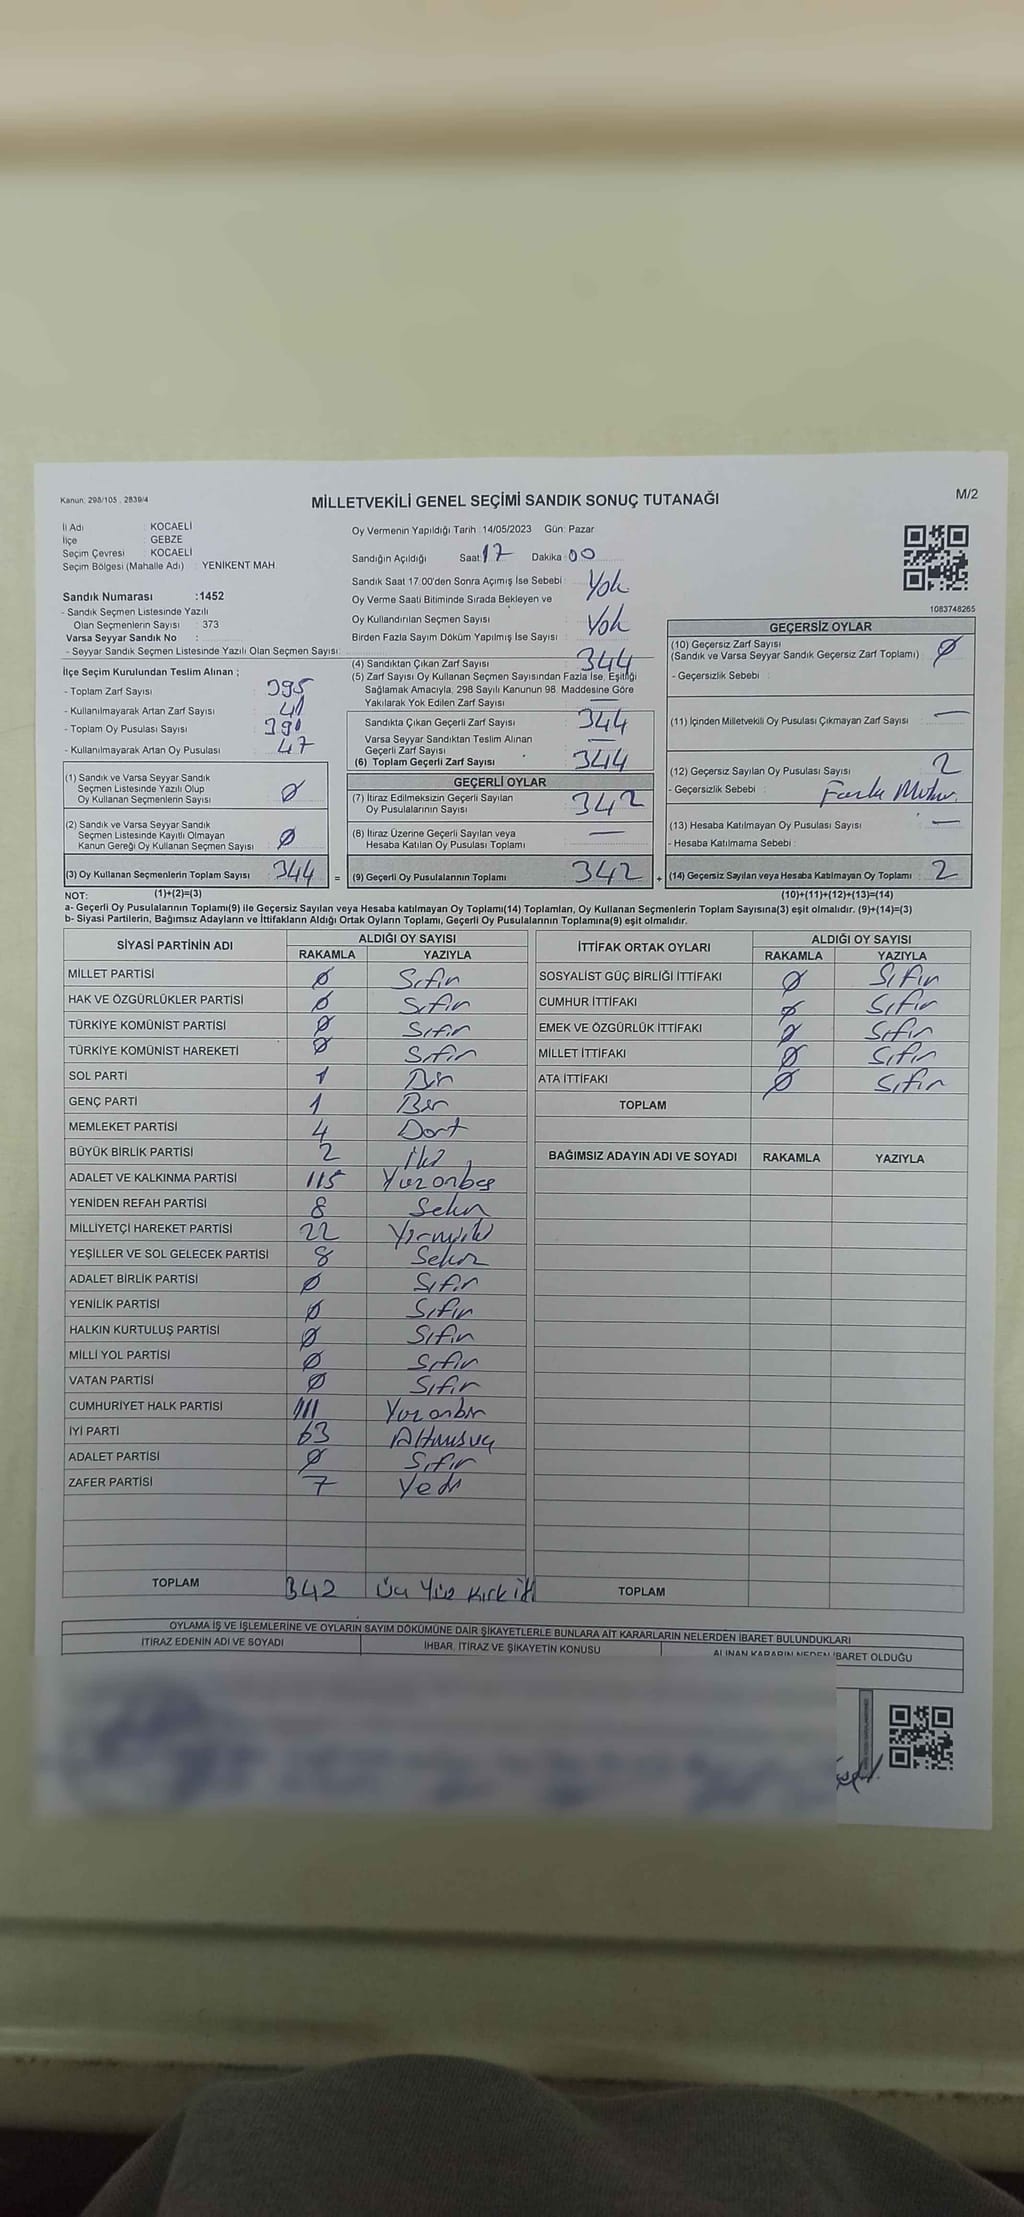 Kanun: 298/105 , 2839/4
MİLLETVEKİLİ GENEL SEÇİMİ SANDIK SONUÇ TUTANAĞI
M/2
İl Adı : KOCAELİ
İlçe : GEBZE
Seçim Çevresi : KOCAELİ
Seçim Bölgesi (Mahalle Adı) : YENİKENT MAH.
Sandık Numarası :1452
- Sandık Seçmen Listesinde Yazılı
Olan Seçmenlerin Sayısı : 373
Varsa Seyyar Sandık No :
- Seyyar Sandık Seçmen Listesinde Yazılı Olan Seçmen Sayısı:
Oy Vermenin Yapıldığı Tarih :14/05/2023 Gün: Pazar
Sandığın Açıldığı Saat:17 Dakika:00
Sandık Saat 17.00'den Sonra Açımış İse Sebebi : Yok
Oy Verme Saati Bitiminde Sırada Bekleyen ve
Oy Kullandırılan Seçmen Sayısı : Yok
Birden Fazla Sayım Döküm Yapılmış İse Sayısı :
1083748265
İlçe Seçim Kurulundan Teslim Alınan ;
- Toplam Zarf Sayısı : 395
- Kullanılmayarak Artan Zarf Sayısı : 41
- Toplam Oy Pusulası Sayısı : 391
- Kullanılmayarak Artan Oy Pusulası : 47
(1) Sandık ve Varsa Seyyar Sandık
Seçmen Listesinde Yazılı Olup
Oy Kullanan Seçmenlerin Sayısı : Ø
(2) Sandık ve Varsa Seyyar Sandık
Seçmen Listesinde Kayıtlı Olmayan
Kanun Gereği Oy Kullanan Seçmen Sayısı : Ø
(3) Oy Kullanan Seçmenlerin Toplam Sayısı : 344 =
(4) Sandıktan Çıkan Zarf Sayısı : 344
(5) Zarf Sayısı Oy Kullanan Seçmen Sayısından Fazla İse, Eşitliği
Sağlamak Amacıyla, 298 Sayılı Kanunun 98. Maddesine Göre
Yakılarak Yok Edilen Zarf Sayısı : —
Sandıkta Çıkan Geçerli Zarf Sayısı : 344
Varsa Seyyar Sandıktan Teslim Alınan
Geçerli Zarf Sayısı : —
(6) Toplam Geçerli Zarf Sayısı : 344
GEÇERLİ OYLAR
(7) İtiraz Edilmeksizin Geçerli Sayılan
Oy Pusulalarının Sayısı : 342
(8) İtiraz Üzerine Geçerli Sayılan veya
Hesaba Katılan Oy Pusulası Toplamı : —
(9) Geçerli Oy Pusulalarının Toplamı : 342 +
GEÇERSİZ OYLAR
(10) Geçersiz Zarf Sayısı : Ø
(Sandık ve Varsa Seyyar Sandık Geçersiz Zarf Toplamı)
- Geçersizlik Sebebi :
(11) İçinden Milletvekili Oy Pusulası Çıkmayan Zarf Sayısı : —
(12) Geçersiz Sayılan Oy Pusulası Sayısı : 2
- Geçersizlik Sebebi :
(13) Hesaba Katılmayan Oy Pusulası Sayısı : —
- Hesaba Katılmama Sebebi :
(14) Geçersiz Sayılan veya Hesaba Katılmayan Oy Toplamı : 2
NOT: (1)+(2)=(3) (10)+(11)+(12)+(13)=(14)
a- Geçerli Oy Pusulalarının Toplamı(9) ile Geçersiz Sayılan veya Hesaba katılmayan Oy Toplamı(14) Toplamları, Oy Kullanan Seçmenlerin Toplam Sayısına(3) eşit olmalıdır. (9)+(14)=(3)
b- Siyasi Partilerin, Bağımsız Adayların ve İttifakların Aldığı Ortak Oyların Toplamı, Geçerli Oy Pusulalarının Toplamına(9) eşit olmalıdır.
SİYASİ PARTİNİN ADI ALDIĞI OY SAYISI
RAKAMLA YAZIYLA
MİLLET PARTİSİ Ø Sıfır
HAK VE ÖZGÜRLÜKLER PARTİSİ Ø Sıfır
TÜRKİYE KOMÜNİST PARTİSİ Ø Sıfır
TÜRKİYE KOMÜNİST HAREKETİ Ø Sıfır
SOL PARTİ 1 Bir
GENÇ PARTİ 1 Bir
MEMLEKET PARTİSİ 4 Dört
BÜYÜK BİRLİK PARTİSİ 2 İki
ADALET VE KALKINMA PARTİSİ 115 Yüzonbeş
YENİDEN REFAH PARTİSİ 8 Sekiz
MİLLİYETÇİ HAREKET PARTİSİ 22 Yirmiiki
YEŞİLLER VE SOL GELECEK PARTİSİ 8 Sekiz
ADALET BİRLİK PARTİSİ Ø Sıfır
YENİLİK PARTİSİ Ø Sıfır
HALKIN KURTULUŞ PARTİSİ Ø Sıfır
MİLLİ YOL PARTİSİ Ø Sıfır
VATAN PARTİSİ Ø Sıfır
CUMHURİYET HALK PARTİSİ 111 Yüzonbir
İYİ PARTİ 63 Altmışüç
ADALET PARTİSİ Ø Sıfır
ZAFER PARTİSİ 7 Yedi
TOPLAM 342 Üç Yüz Kırk iki
İTTİFAK ORTAK OYLARI ALDIĞI OY SAYISI
RAKAMLA YAZIYLA
SOSYALİST GÜÇ BİRLİĞİ İTTİFAKI Ø Sıfır
CUMHUR İTTİFAKI Ø Sıfır
EMEK VE ÖZGÜRLÜK İTTİFAKI Ø Sıfır
MİLLET İTTİFAKI Ø Sıfır
ATA İTTİFAKI Ø Sıfır
TOPLAM
BAĞIMSIZ ADAYIN ADI VE SOYADI RAKAMLA YAZIYLA
TOPLAM
OYLAMA İŞ VE İŞLEMLERİNE VE OYLARIN SAYIM DÖKÜMÜNE DAİR ŞİKAYETLERLE BUNLARA AİT KARARLARIN NELERDEN İBARET BULUNDUKLARI
İTİRAZ EDENİN ADI VE SOYADI İHBAR, İTİRAZ VE ŞİKAYETİN KONUSU ALINAN KARARIN NEDEN İBARET OLDUĞU